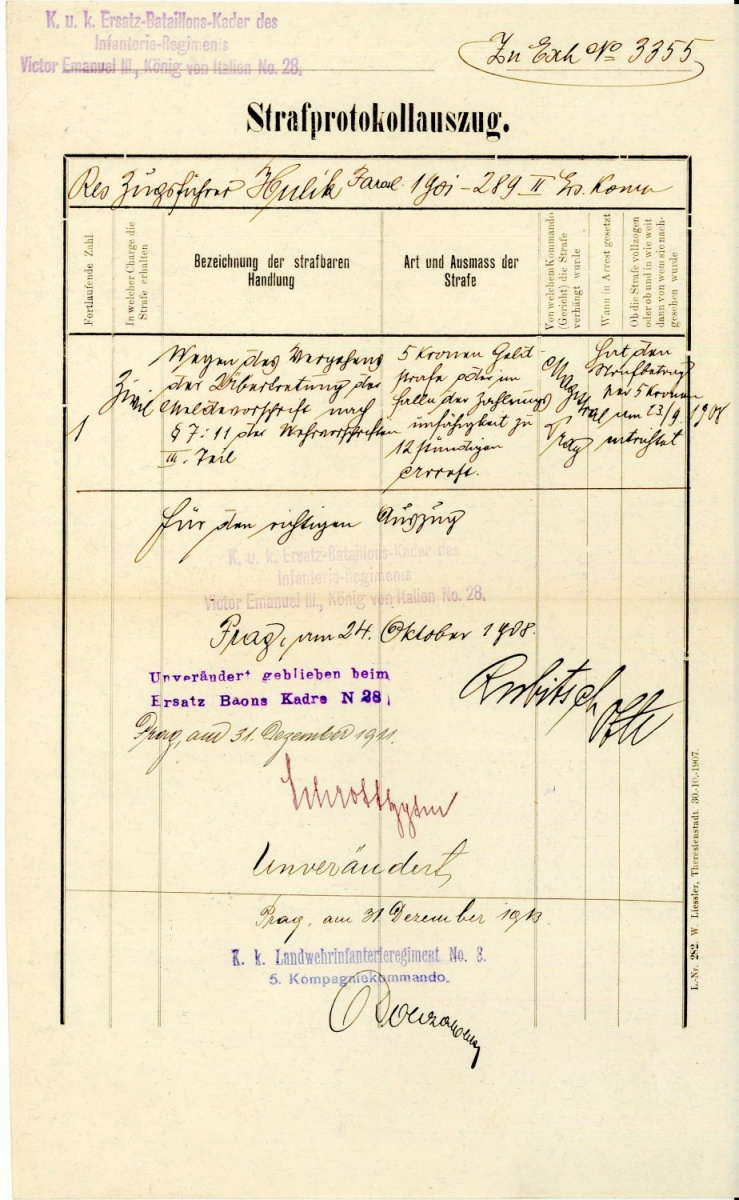 K. u. k. Ersatz-Bataillons-Kader des
Infanterie-Regiments
Victor Emanuel III., König von Italien No. 28.
Zu Exh No 3355
Strafprotokollauszug.
Res Zugsführer Hulik 1901 - 289 II Ers. Komp
Fortlaufende Zahl
In welcher Charge die Strafe erhalten
Bezeichnung der strafbaren
Handlung
Art und Ausmass der
Strafe
Von welchem Kommando
(Gericht) die Strafe
verhängt wurde
Wann in Arrest gesetzt
Ob die Strafe vollzogen
oder ob und in wie weit
dann von wem sie nach-
gesehen wurde
1
Zivil
Wegen des Vergehens
der Übertretung der
Meldevorschrift nach
§ 7:11 der Wehrvorschriften
III. Teil
5 Kronen Geld-
strafe oder im
Falle der Zahlungs
unfähigkeit zu
12 stündigen
Arrest.
Magistrat
Prag
Hat den
Strafbetrag
per 5 Kronen
am 23/9. 1908
entrichtet
Für den richtigen Auszug
K. u. k. Ersatz-Bataillons-Kader des
Infanterie-Regiments
Victor Emanuel III., König von Italien No. 28.
Prag, am 24. Oktober 1908.
Unverändert geblieben beim
Ersatz Baons Kadre N 28
Prag, am 31. Dezember 1911.
Unverändert
Prag, am 31 Dezember 1913.
K. k. Landwehrinfanterieregiment No. 8.
5. Kompagniekommando.
L.-Nr. 282. W. Liessler, Theresienstadt. 30.-10.-1907.